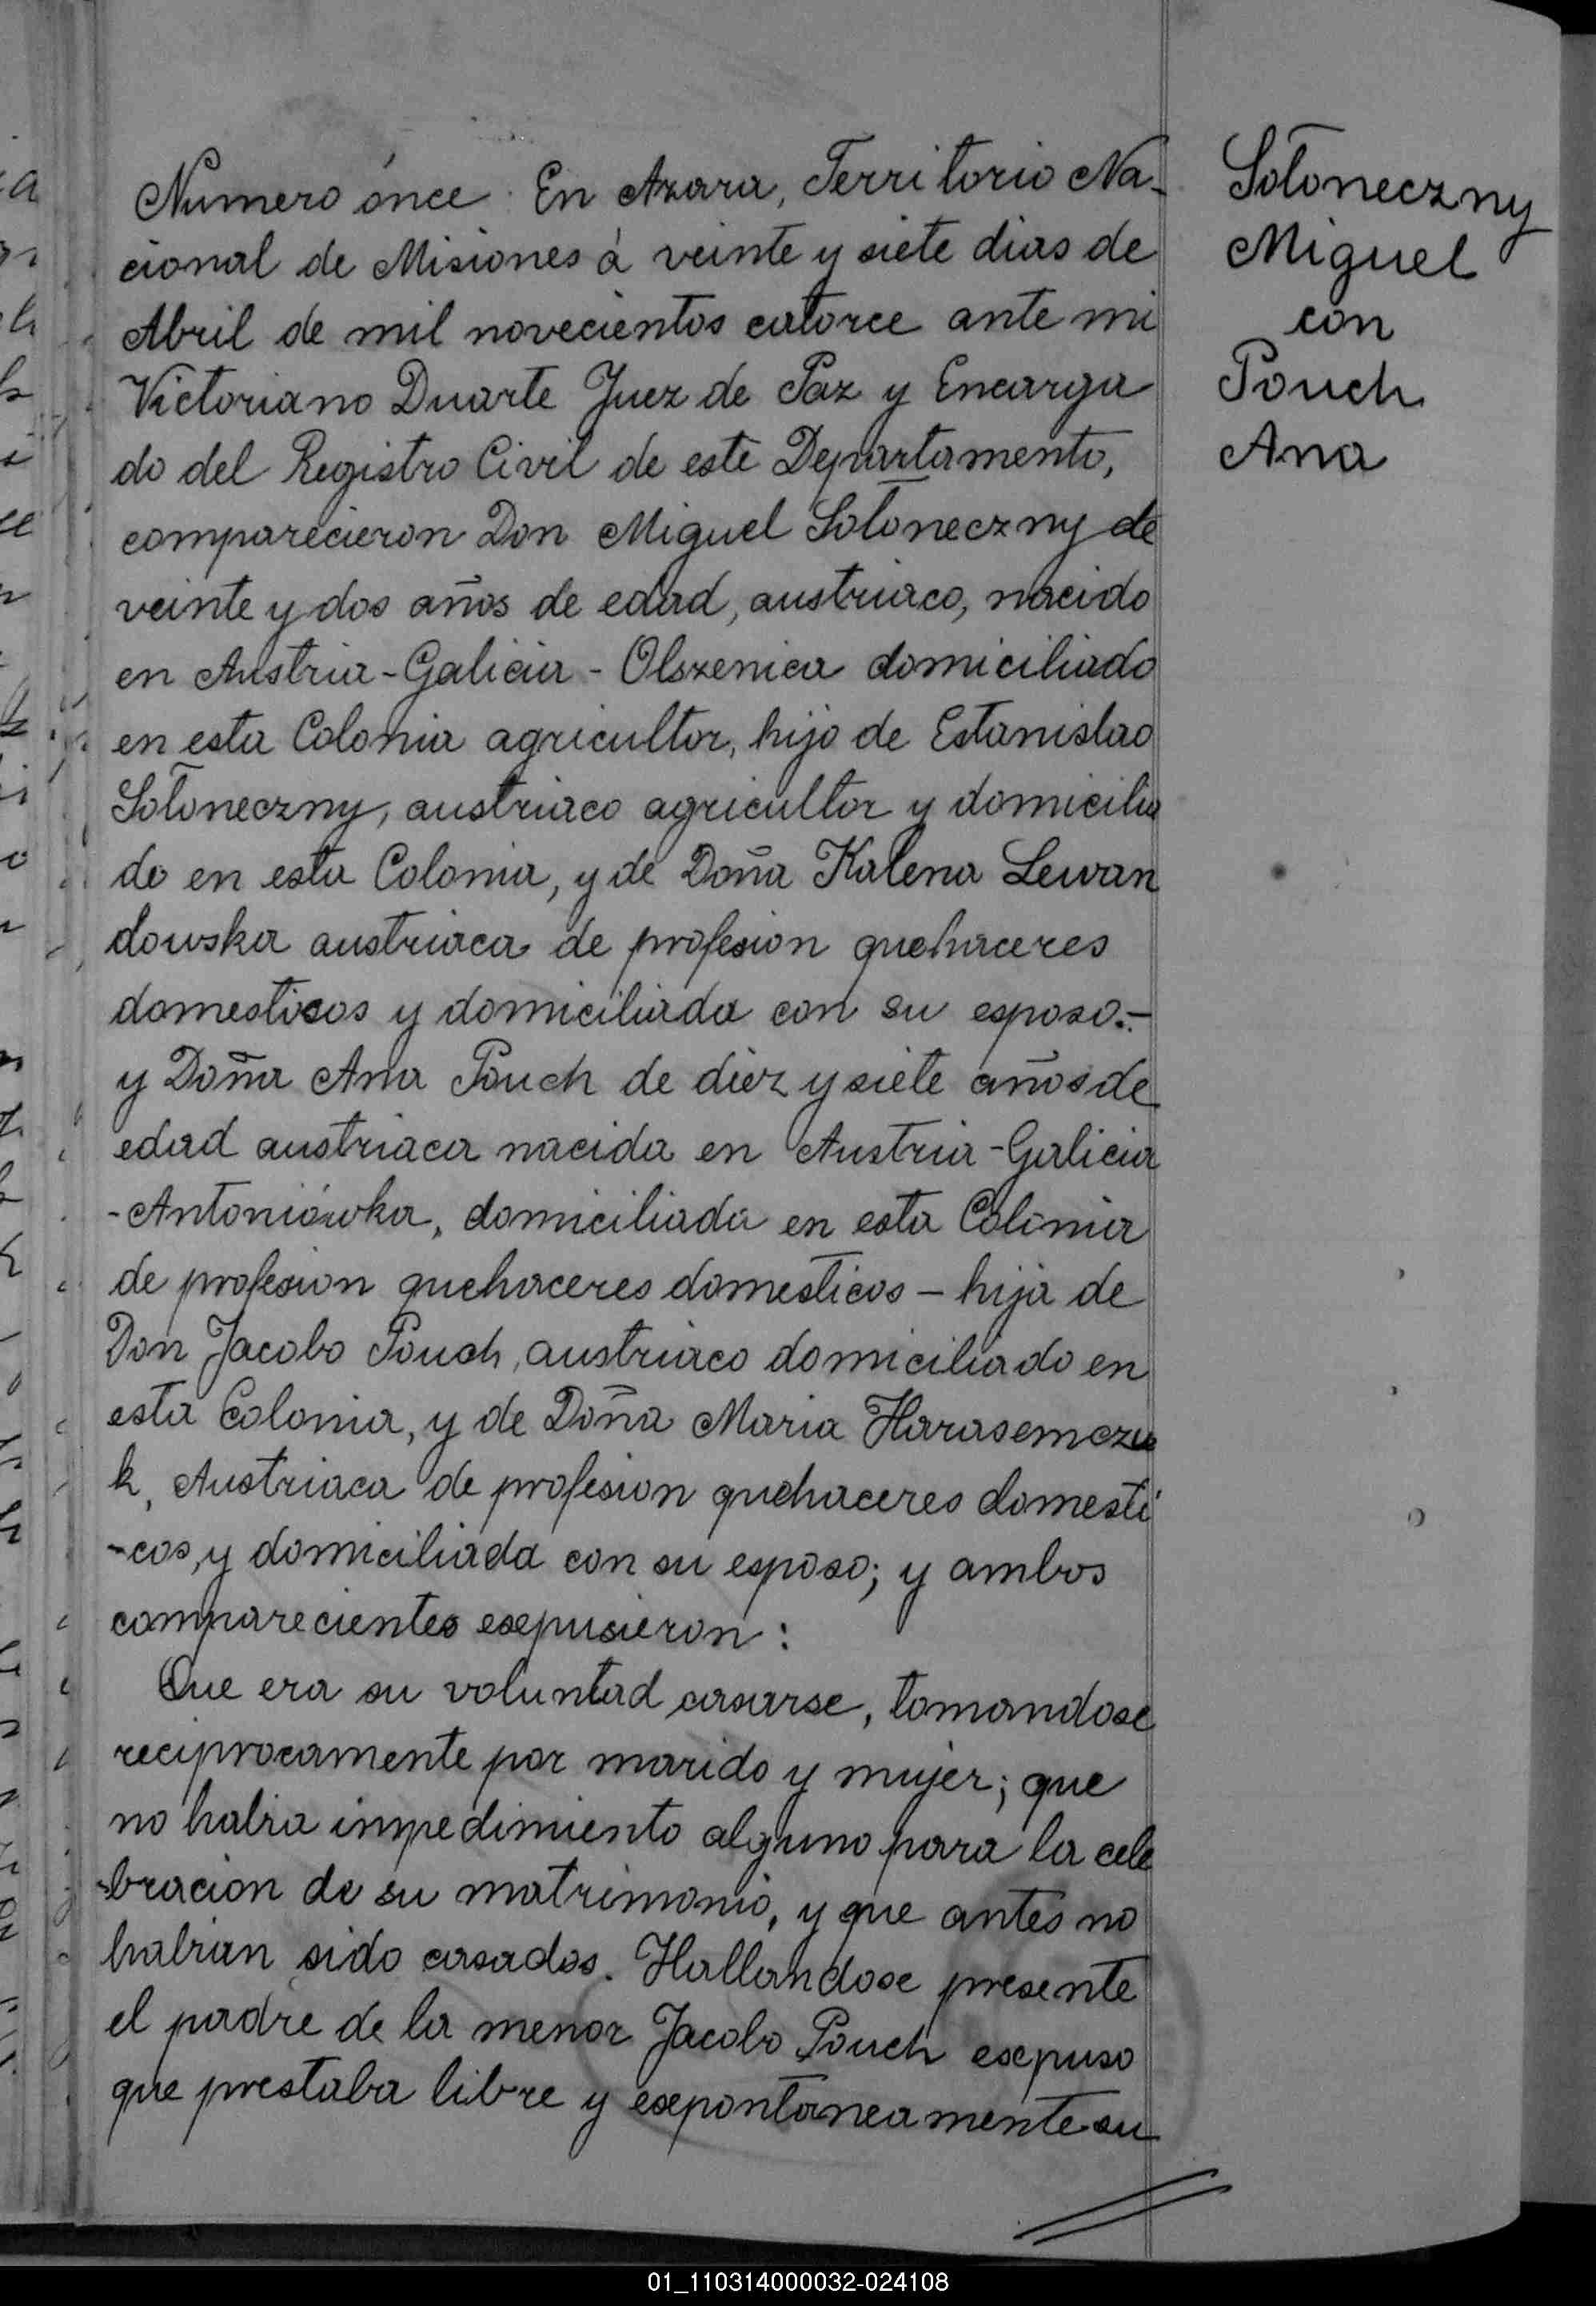 Numero ónce. En Azara, Territorio Na-
cional de Misiones á veinte y siete dias de
Abril de mil novecientos catorce ante mi
Victoriano Duarte Juez de Paz y Encarga
do del Registro Civil de este Departamento,
comparecieron Don Miguel Sotoneczny de
veinte y dos años de edad, austriaco, nacido
en Austria-Galicia-Olszenica domiciliado
en esta Colonia agricultor, hijo de Estanislao
Sotoneczny, austriaco agricultor y domicilia
do en esta Colonia, y de Doña Katena Lewan
dowska austriaca de profesion quehaceres
domesticos y domiciliada con su esposo.-
y Doña Ana Pouch de diez y siete años de
edad austriaca nacida en Austria-Galicia
-Antoniówka, domiciliada en esta Colonia
de profesion quehaceres domesticos - hija de
Don Jacobo Pouch, austriaco domiciliado en
esta Colonia, y de Doña Maria Harasemczu
k, Austriaca de profesion quehaceres domesti
-cos, y domiciliada con su esposo; y ambos
comparecientes expusieron:
Que era su voluntad casarse, tomandose
reciprocamente por marido y mujer; que
no habia impedimiento alguno para la cele
-bracion de su matrimonio, y que antes no
habian sido casados. Hallandose presente
el padre de la menor Jacobo Pouch expuso
que prestaba libre y expontaneamente su
Sotoneczny
Miguel
con
Pouch
Ana
01_110314000032-024108